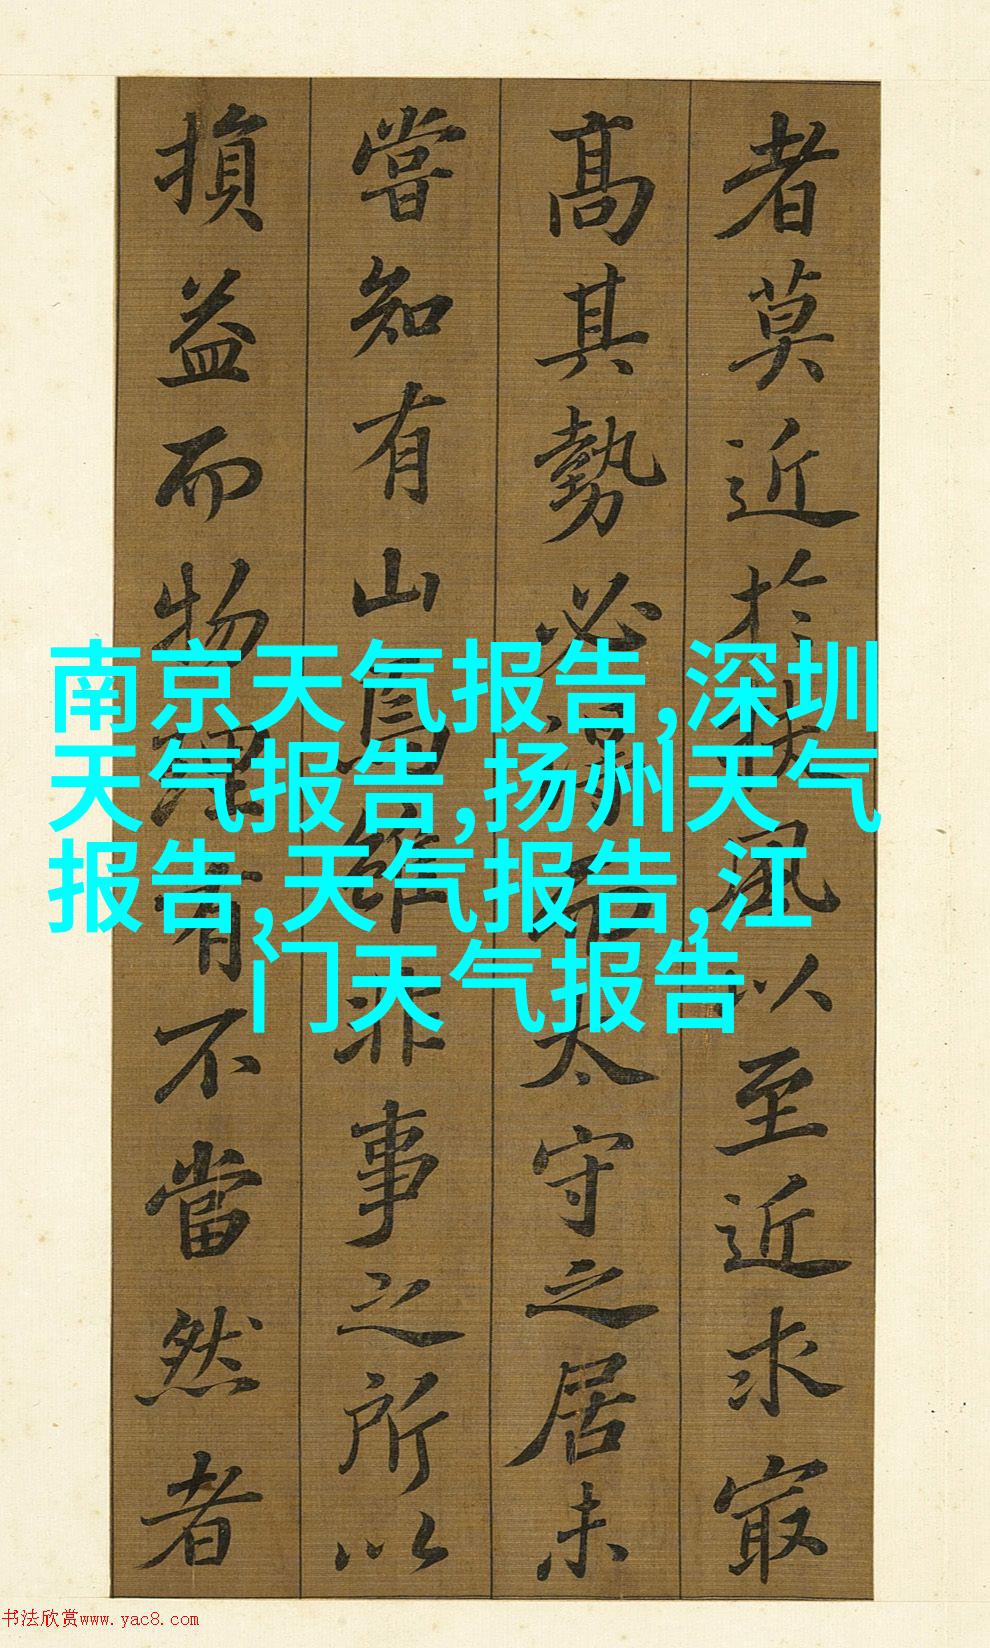 者莫近扵扶風以至近求冣
高其勢必得而太守之居未
嘗知有山焉雖非事之所以
損益而物理有不當然者
南京天气报告,深圳
天气报告,扬州天气
报告,天气报告,江
门天气报告
书法欣赏www.yac8.com